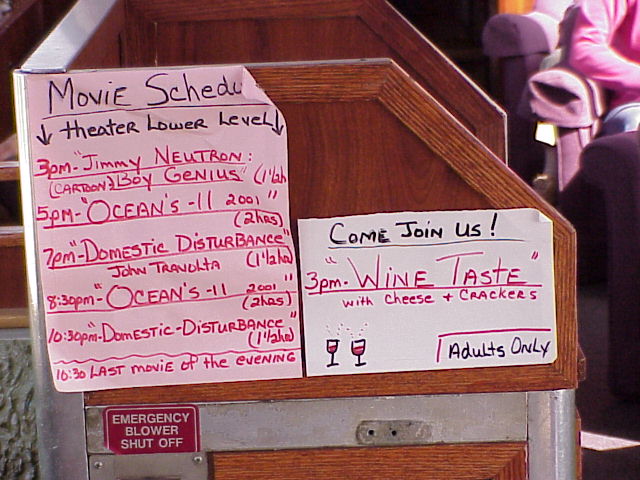 Movie Schedu
theater Lower Level
3pm-"Jimmy Neutron:
(Cartoon) Boy Genius" (1½h
5pm-"Ocean's-11 2001"
(2hrs)
7pm"Domestic Disturbance"
John Travolta (1½hr)
8:30pm-"Ocean's-11 2001"
(2hrs)
10:30pm-"Domestic-Disturbance"
(1½hr)
10:30 Last movie of the evening
Come Join Us!
3pm-"Wine Taste"
with cheese + crackers
Adults Only
EMERGENCY
BLOWER
SHUT OFF